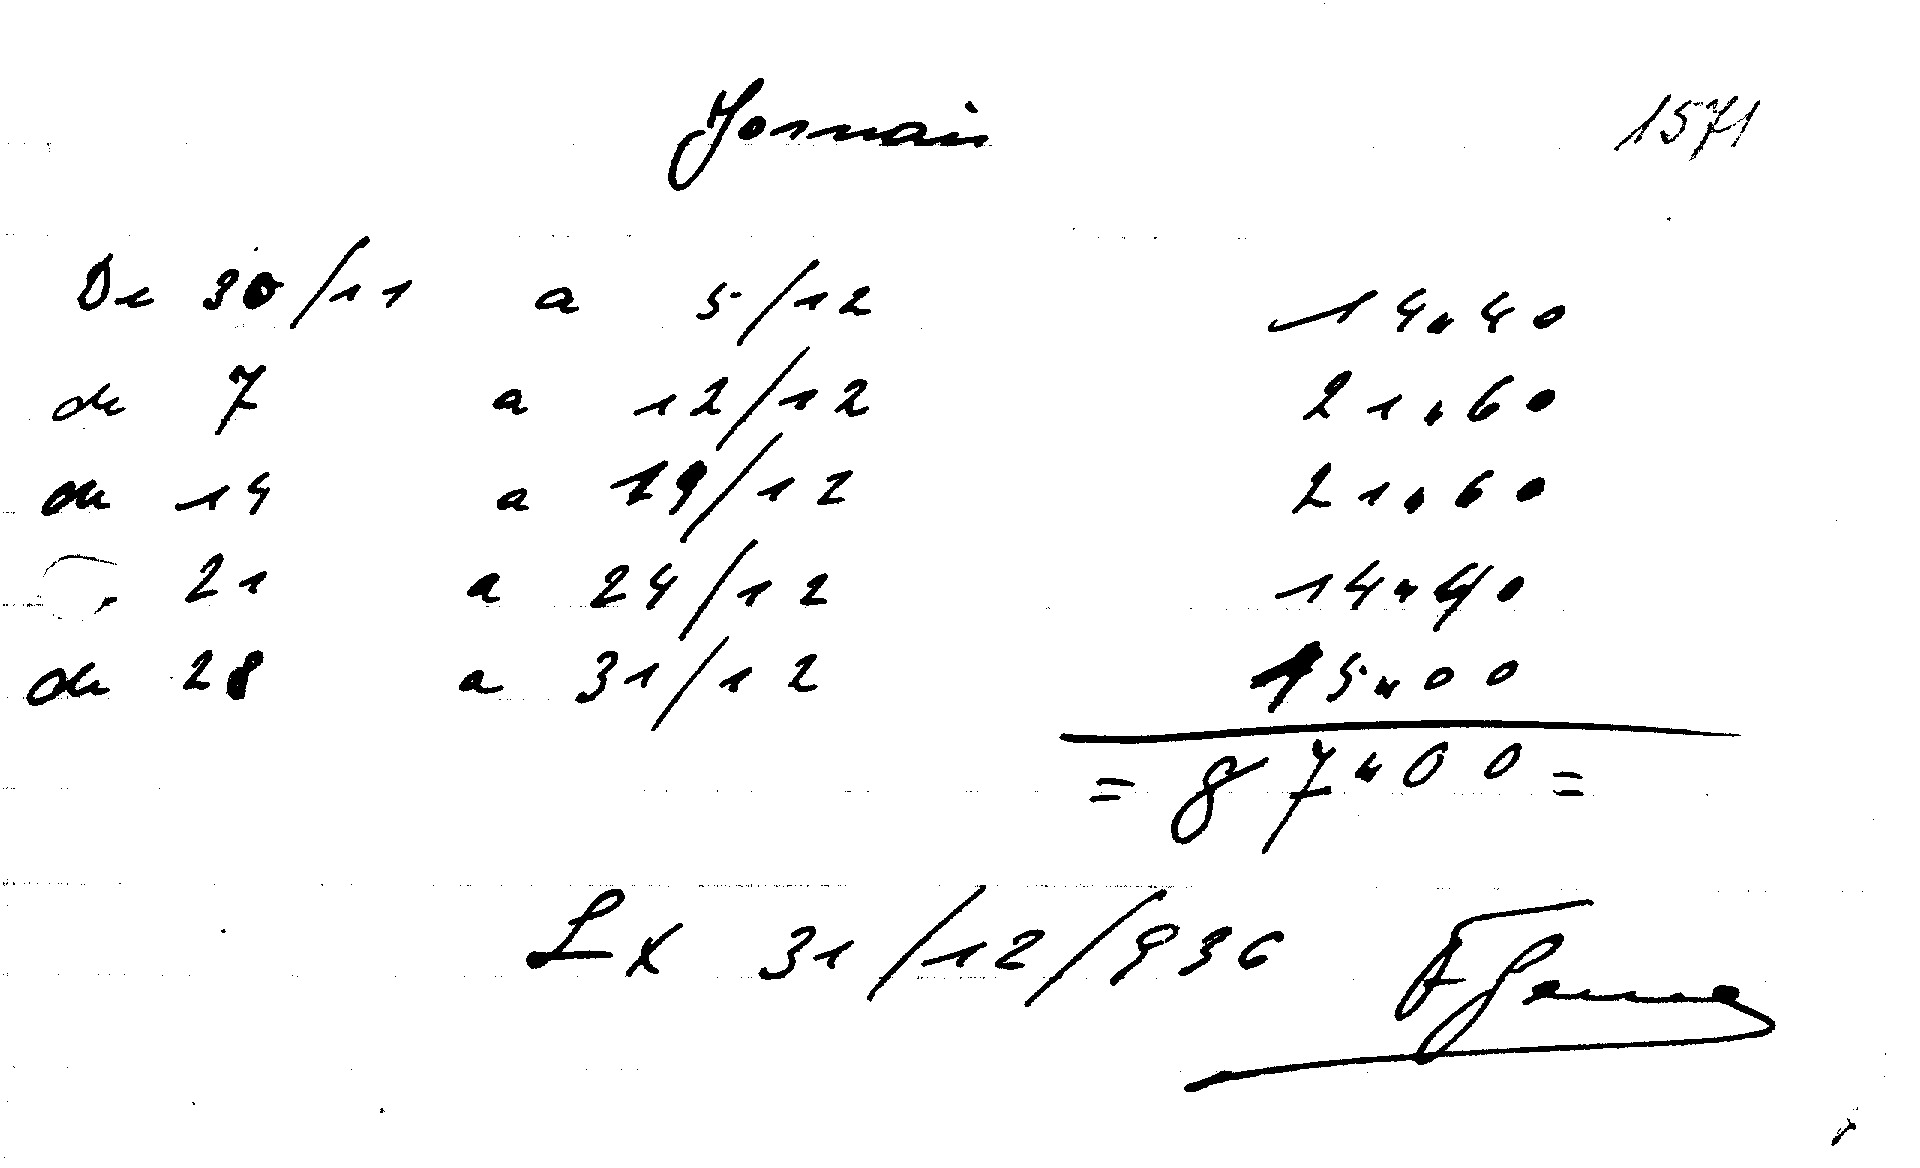 Jornais 1571
De 30/11 a 5/12 14"40
de 7 a 12/12 21"60
de 14 a 19/12 21"60
21 a 24/12 14"40
de 28 a 31/12 15"00
= 87"00 =
Lx 31/12/936